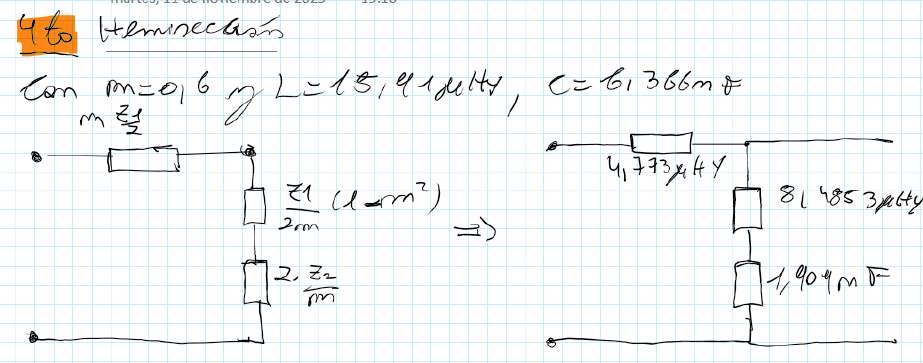 martes, 11 de noviembre de 2025 19:10
4to Hemisección
Con m=0,6 y L=15,91μHy, C=6,366nF
m Z1/2
Z1/2m (1-m²)
2. Z2/m
⇒
4,773μHy
8,4853μHy
1,909nF